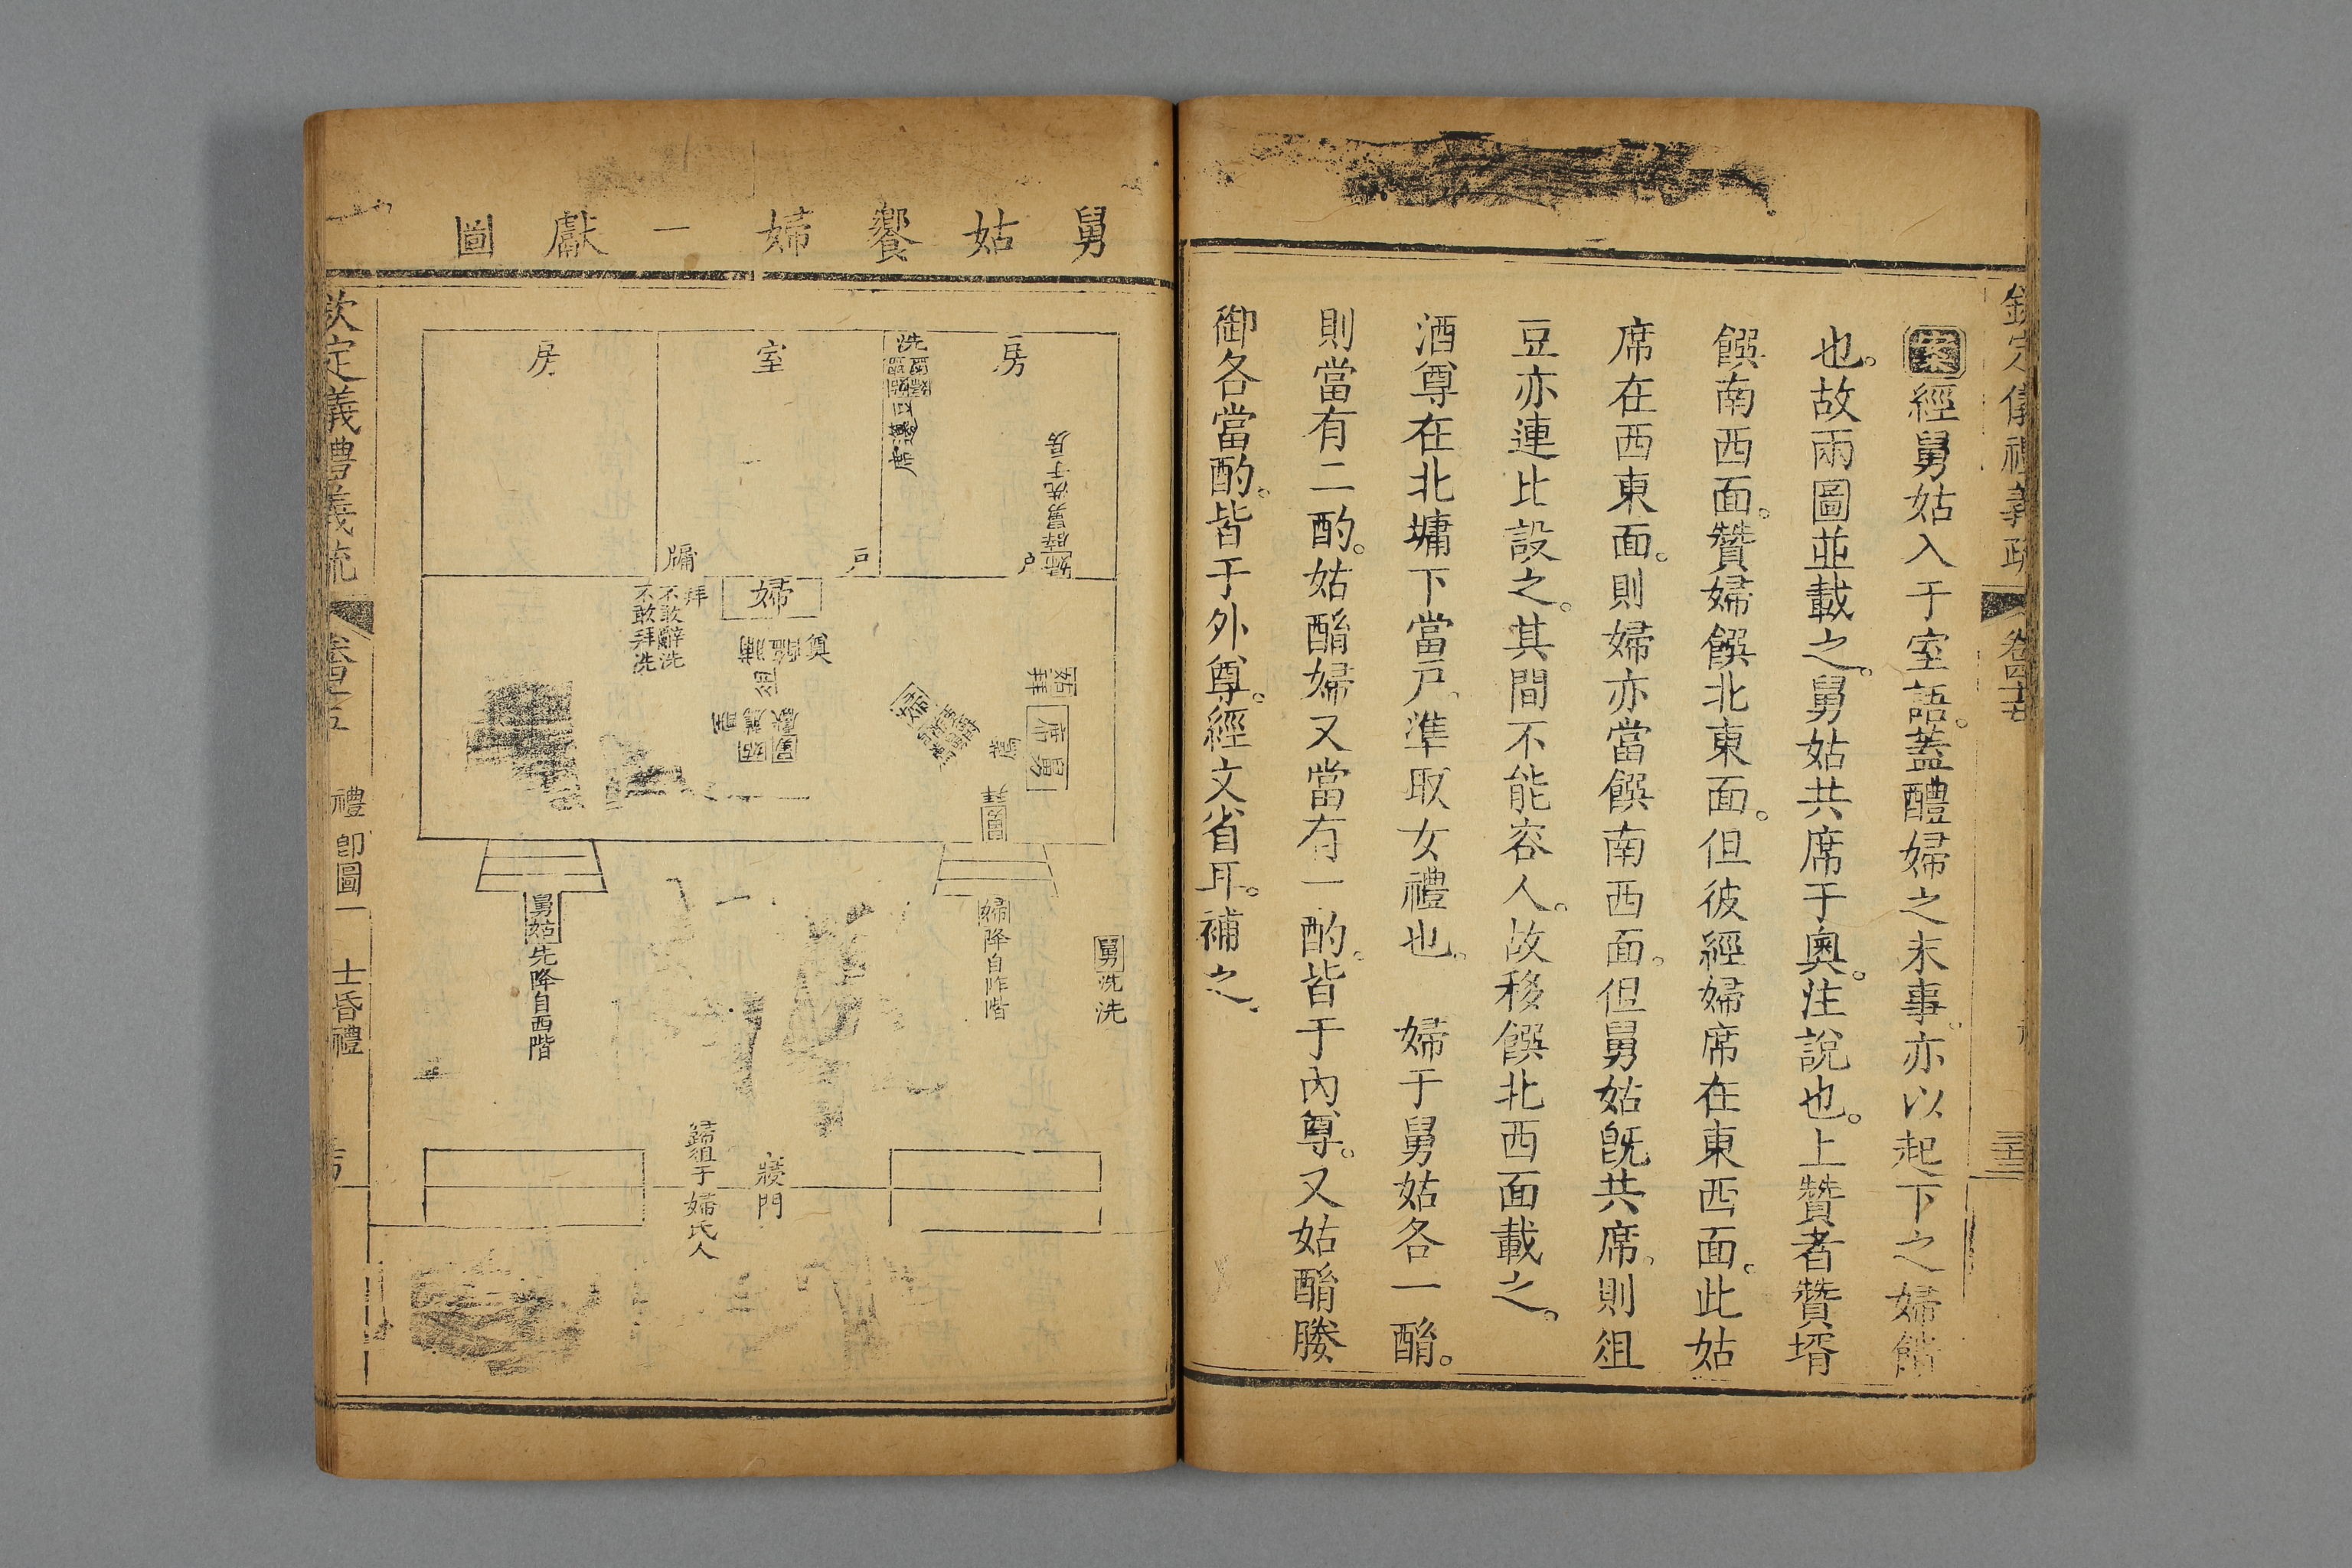 欽定儀禮義疏
案經舅姑入于室語。蓋醴婦之末事。亦以起下之婦饋
也。故兩圖並載之。舅姑共席于奧。注說也。上贊者贊壻
饌南西面。贊婦饌北東面。但彼經婦席在東西面。此姑
席在西東面。則婦亦當饌南西面。但舅姑旣共席。則俎
豆亦連比設之。其間不能容人。故移饌北西面載之。
酒尊在北墉下當戸。準取女禮也。 婦于舅姑各一酳。
則當有二酌。姑酳婦又當有一酌。皆于內尊。又姑酳媵
御各當酌。皆于外尊。經文省耳。補之。
舅姑饗婦一獻圖
房
洗
籩豆
席
姑薦舅洗于房
戸
室
戸
牖
房
婦
拜
不敢辭洗
不敢拜洗
奠
醢
脯
俎
姑
拜
席
舅
舅
拜
舅姑先降自西階
婦降自阼階
舅洗
洗
寢門
歸俎于婦氏人
欽定義禮義疏
禮節圖一
士昏禮